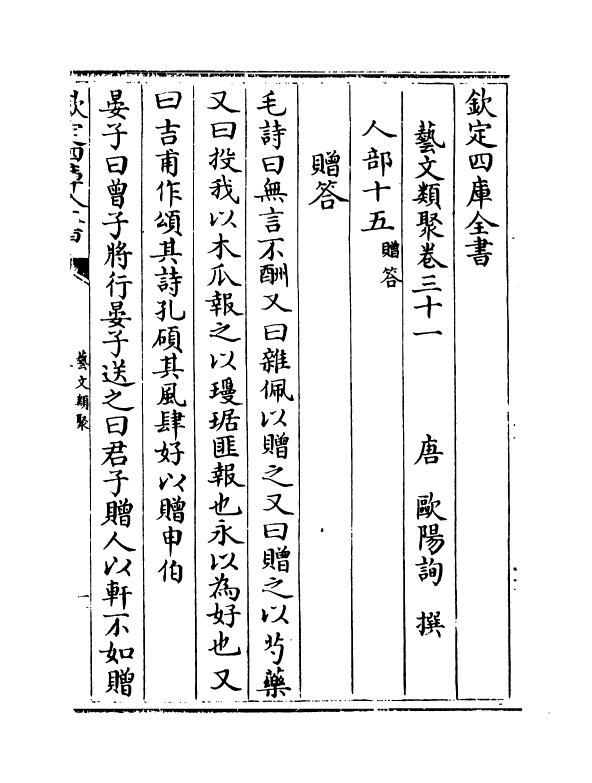 欽定四庫全書
藝文類聚卷三十一　唐　歐陽詢　撰
人部十五 贈答
贈答
毛詩曰無言不酬又曰雜佩以贈之又曰贈之以芍藥
又曰投我以木瓜報之以瓊琚匪報也永以為好也又
曰吉甫作頌其詩孔碩其風肆好以贈申伯
晏子曰曾子將行晏子送之曰君子贈人以軒不如贈
欽定四庫全書
藝文類聚
一